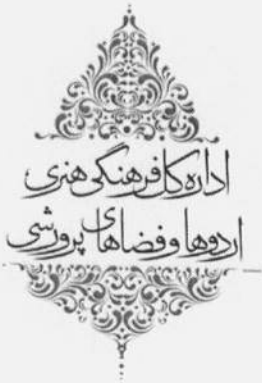 اداره کل فرهنگی هنری
اردوها و فضاهای پرورشی